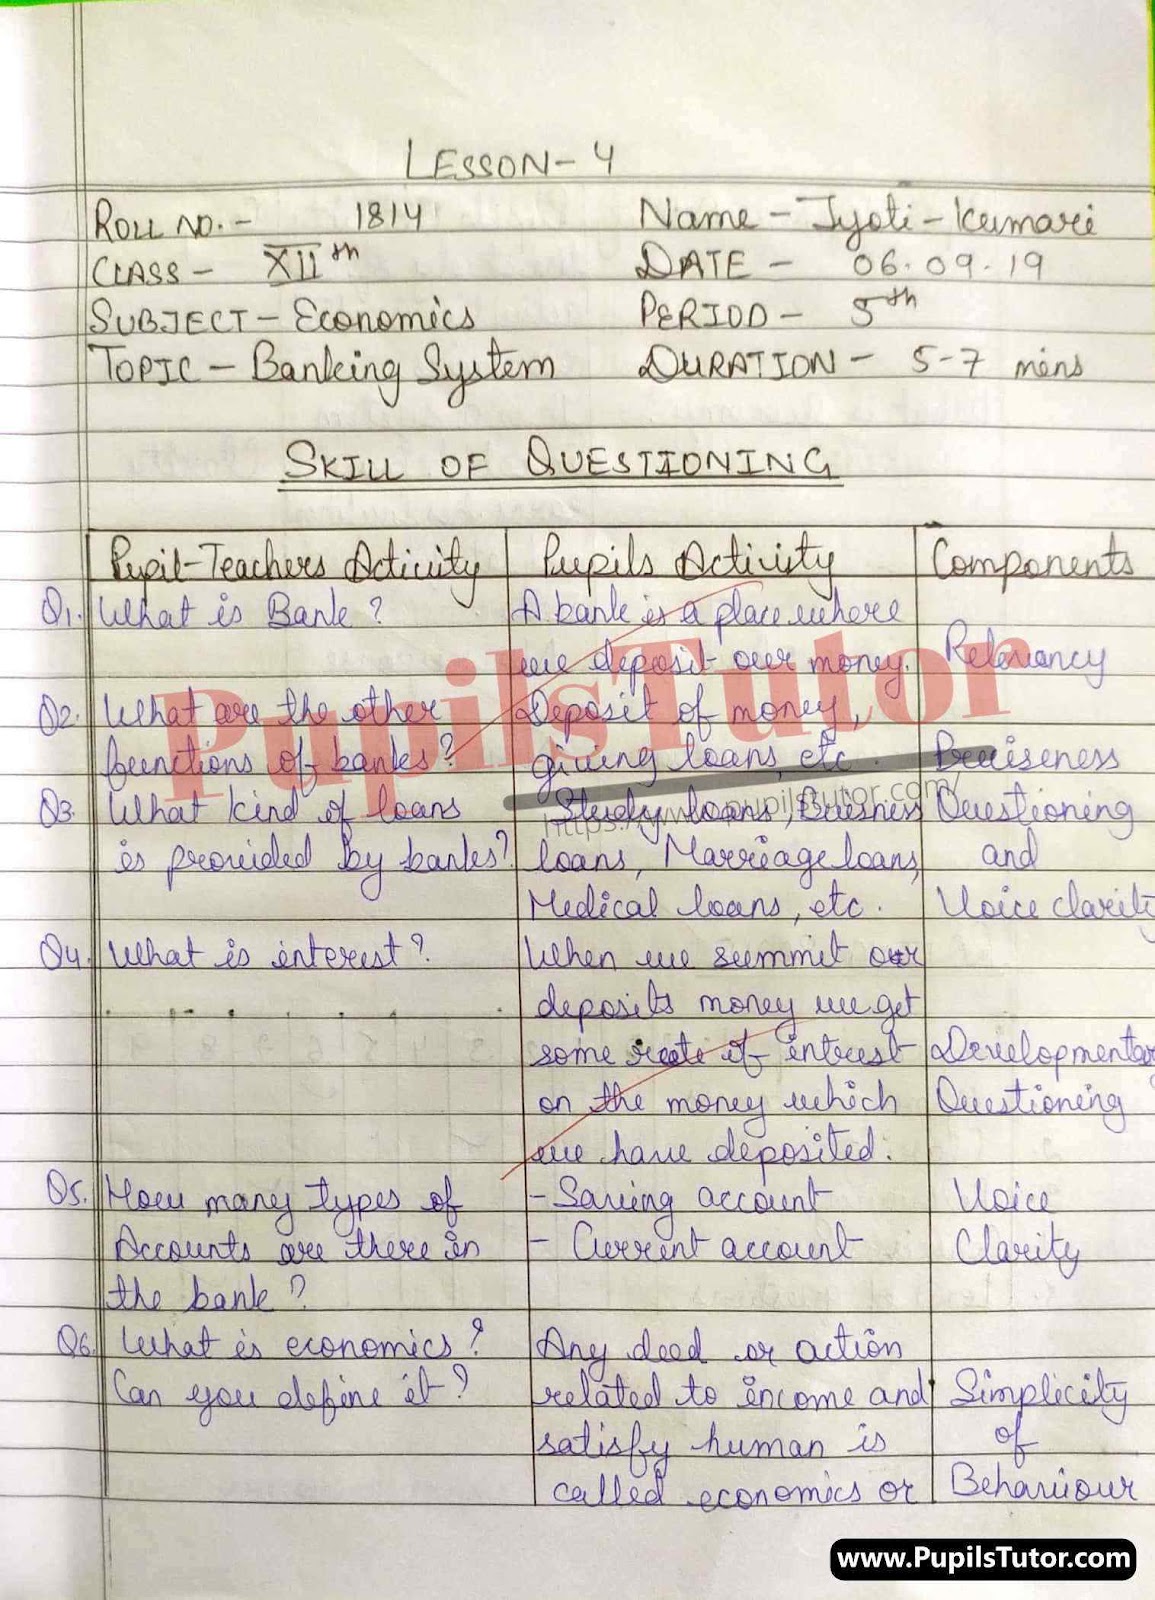 LESSON- 4
ROLL NO. - 1814 Name - Jyoti - Kumari
CLASS - XIIth DATE - 06.09.19
SUBJECT - Economics PERIOD - 5th
TOPIC - Banking System DURATION - 5-7 mins
SKILL OF QUESTIONING
Pupil-Teachers Activity Pupils Activity Components
Q1. What is Bank? A bank is a place where
we deposit our money. Relevancy
Q2. What are the other Deposit of money,
functions of banks? giving loans, etc. Preciseness
Q3. What kind of loans Study loans, Business Questioning
is provided by banks? loans, Marriage loans, and
Medical loans, etc. Voice clarity
Q4. What is interest? When we summit our
deposits money we get
some rate of interest Developmentary
on the money which Questioning
we have deposited.
Q5. How many types of - Saving account Voice
Accounts are there in - Current account Clarity
the bank?
Q6. What is economics? Any deed or action
Can you define it? related to income and Simplicity
satisfy human is of
called economics or Behaviour
PupilsTutor
https://www.pupilstutor.com/
www.PupilsTutor.com